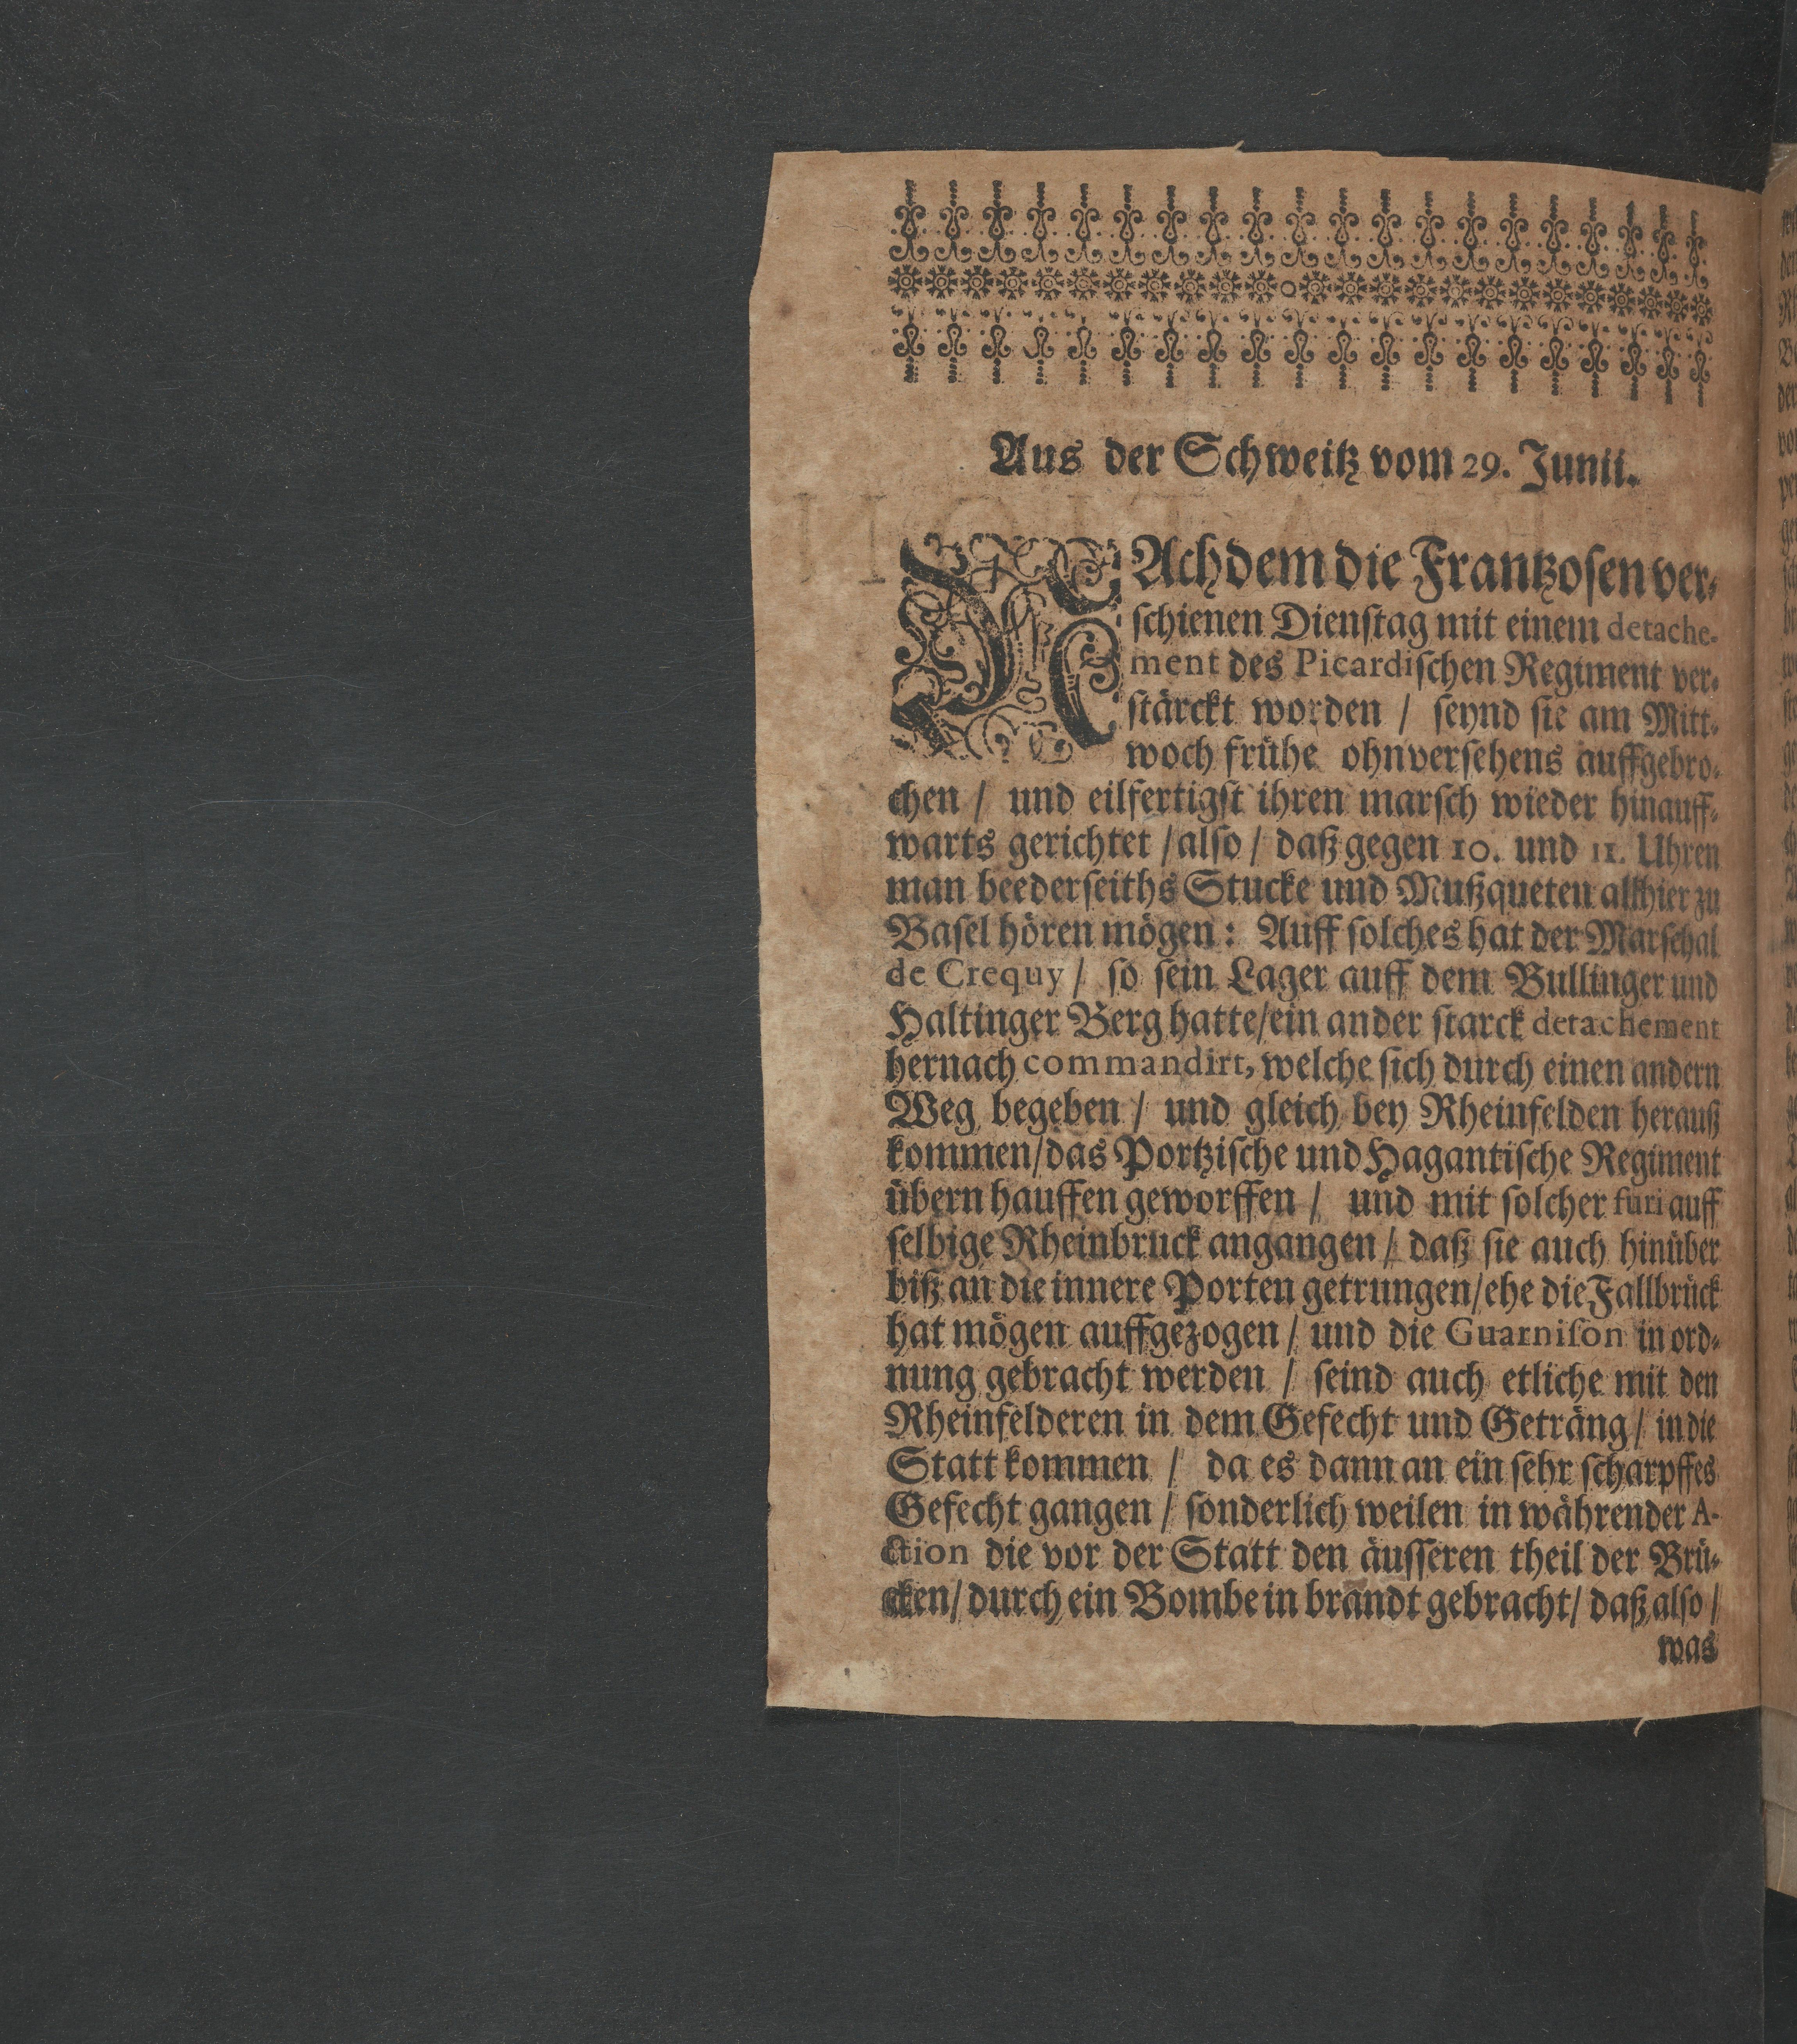 Aus der Schweitz vom 29. Junii.
NAchdem die Frantzosen ver-
schienen Dienstag mit einem detache-
ment des Picardischen Regiment ver-
stärckt worden / seynd sie am Mitt-
woch frühe ohnversehens auffgebro-
chen / und eilfertigst ihren marsch wieder hinauff-
warts gerichtet / also / daß gegen 10. und 11. Uhren
man beederseiths Stucke und Mußqueten allhier zu
Basel hören mögen: Auff solches hat der Marschal
de Crequy / so sein Lager auff dem Bullinger und
Haltinger Berg hatte / ein ander starck detachement
hernach commandirt, welche sich durch einen andern
Weg begeben / und gleich bey Rheinfelden herauß
kommen / das Portzische und Hagantische Regiment
übern hauffen geworffen / und mit solcher furi auff
selbige Rheinbruck angangen / daß sie auch hinüber
biß an die innere Porten getrungen / ehe die Fallbrück
hat mögen auffgezogen / und die Guarnison in ord-
nung gebracht werden / seind auch etliche mit den
Rheinfelderen in dem Gefecht und Geträng / in die
Statt kommen / da es dann an ein sehr scharpffes
Gefecht gangen / sonderlich weilen in währender A-
ction die vor der Statt den äusseren theil der Brü-
cken / durch ein Bombe in brandt gebracht / daß also /
was